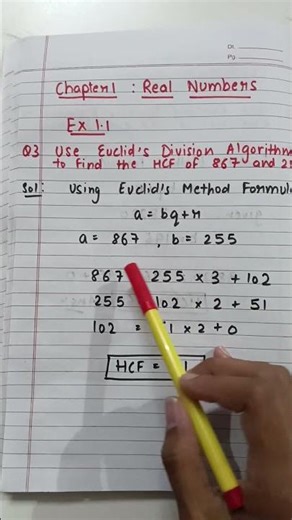 Dt.
Pg.
Chapter 1 : Real Numbers
Ex 1.1
Q3 Use Euclid's Division Algorithm
to find the HCF of 867 and 25
Sol: Using Euclid's Method Formul
a = bq + r
a = 867 , b = 255
867 255 × 3 + 102
255 102 × 2 + 51
102 = 1 × 2 + 0
HCF = 1